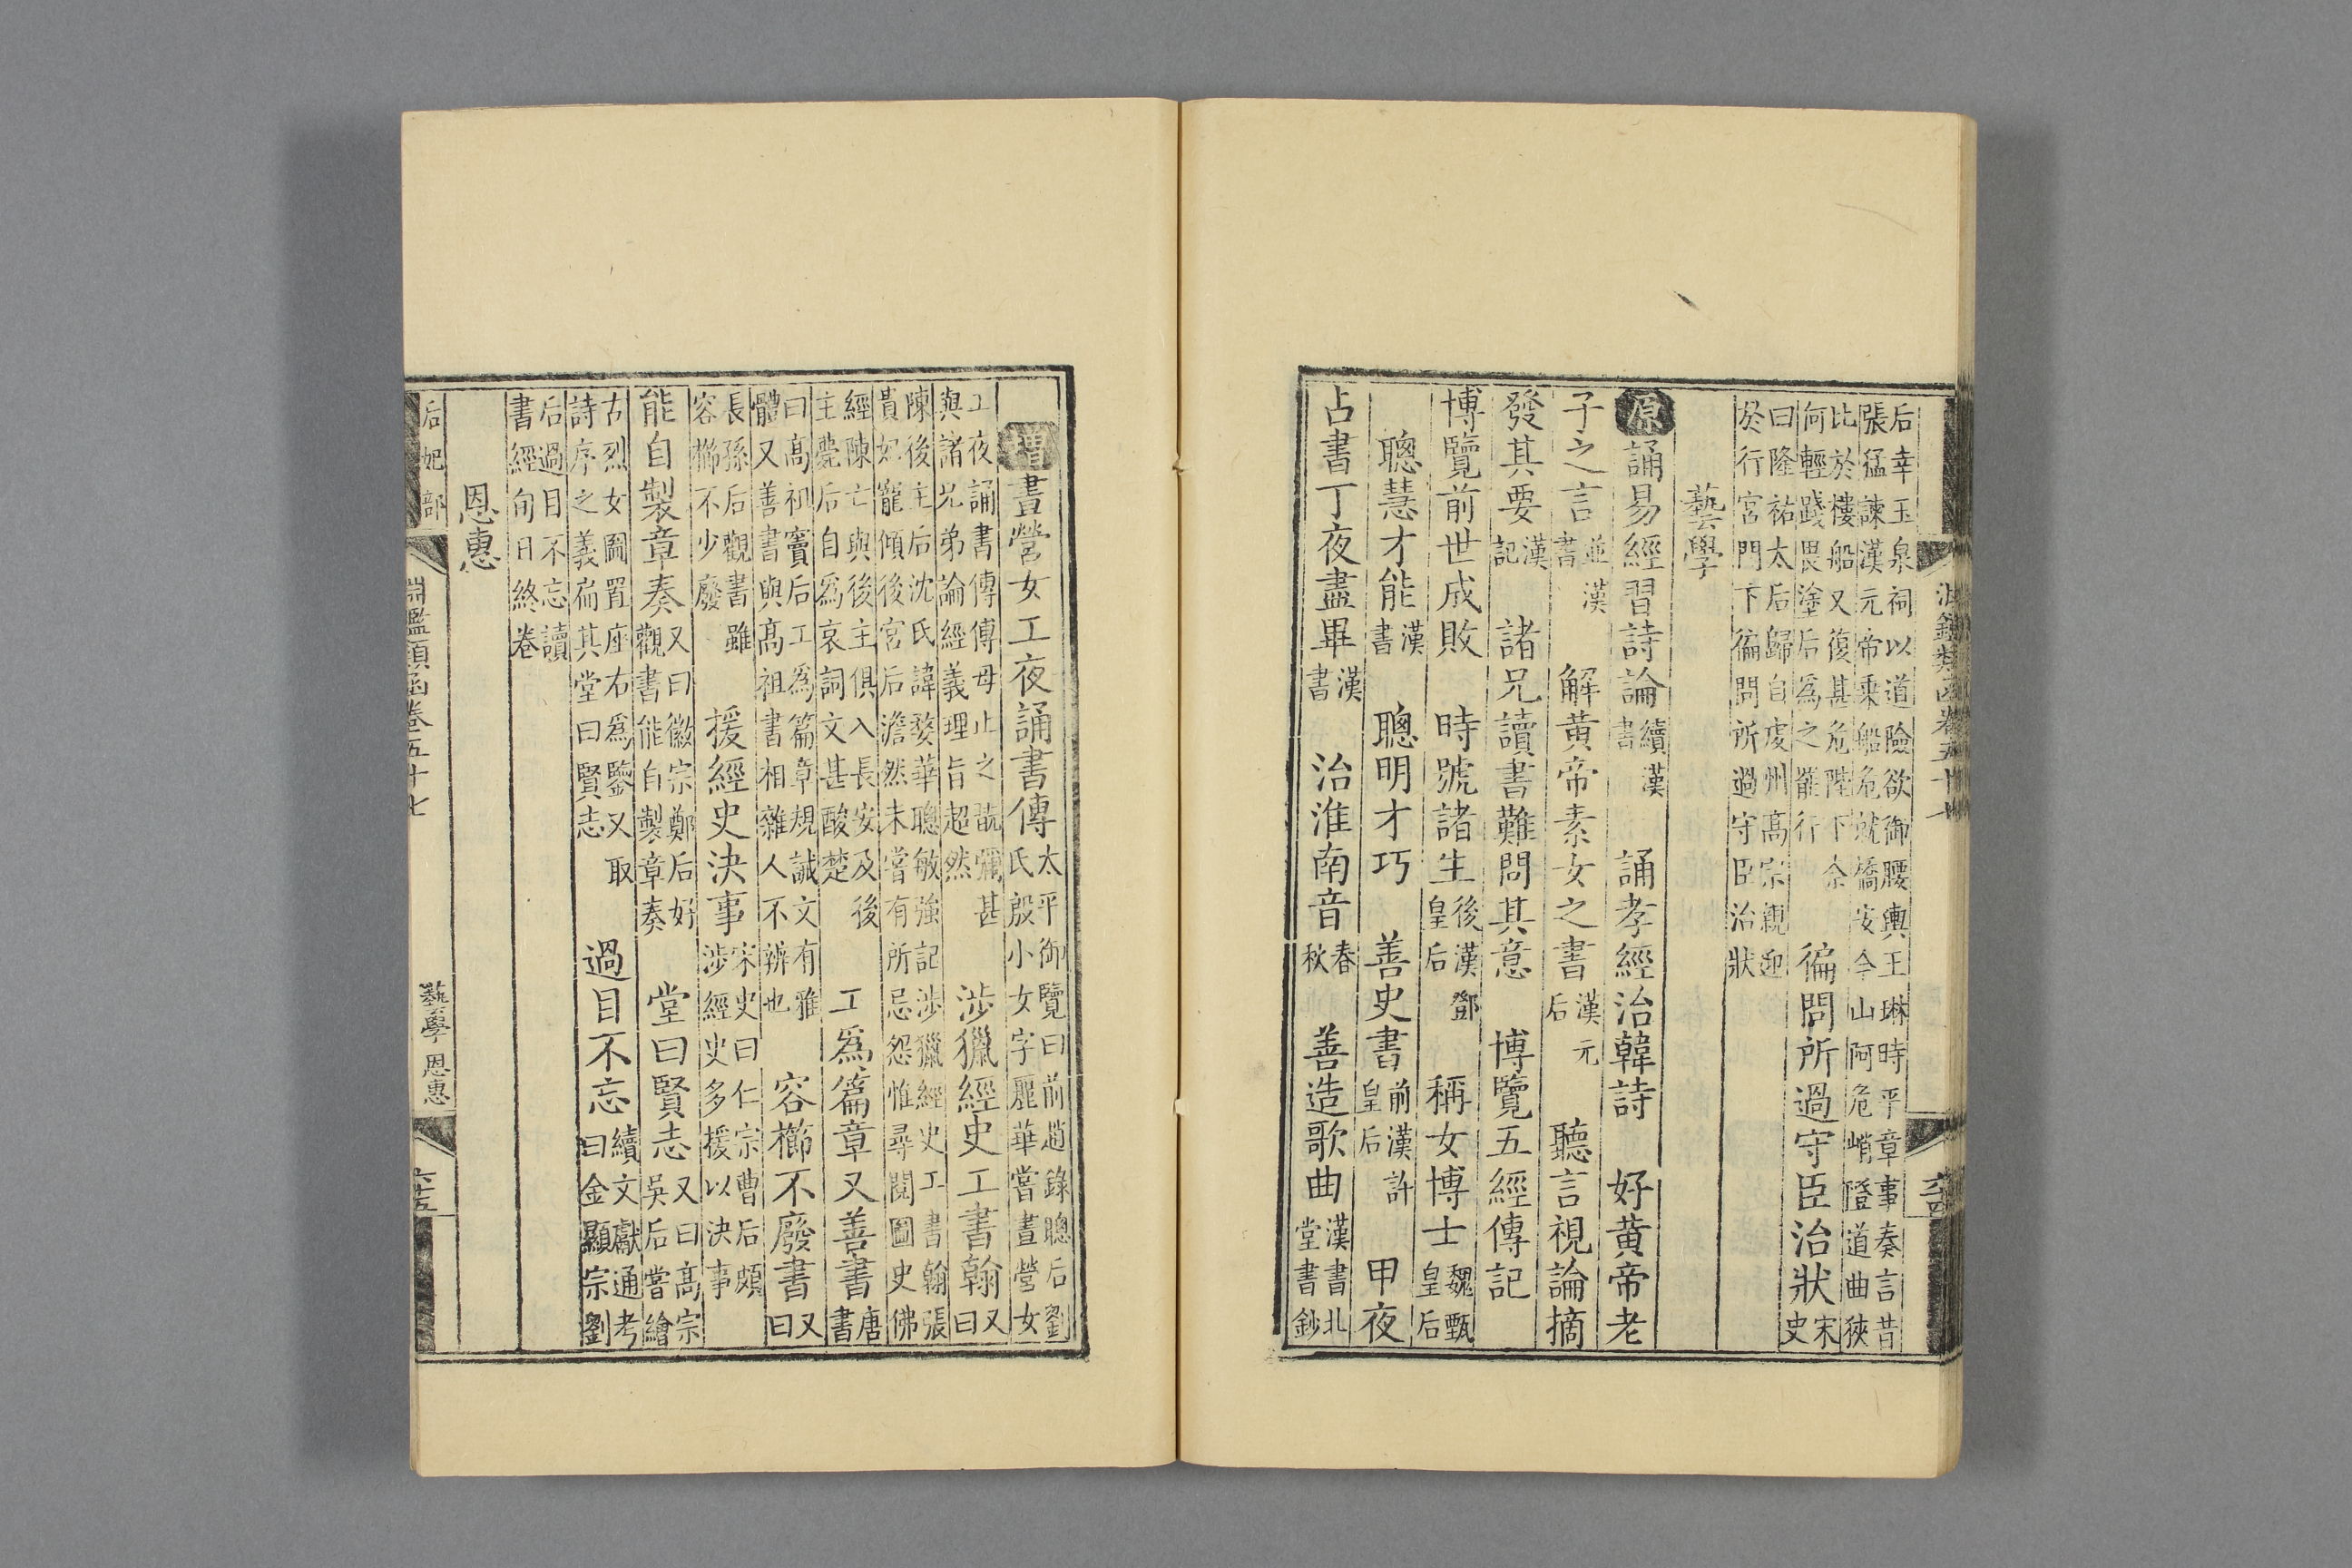 后幸玉泉祠以道險欲御腰輿王琳時平章事奏言昔張猛諫漢元帝乘船危就橋安今山阿危峭隥道曲狹
比於樓船又復甚危陛下奈何輕踐畏塗后爲之罷行 徧問所過守臣治狀 宋史
曰隆祐太后歸自虔州高宗親迎於行宮門下徧問所過守臣治狀
藝學
原 誦易經習詩論 續漢書 誦孝經治韓詩 好黄帝老
子之言 並漢書 解黄帝素女之書 漢元后 聽言視論摘
發其要 漢記 諸兄讀書難問其意 博覽五經傳記
博覽前世成敗 時號諸生 後漢鄧皇后 稱女博士 魏甄皇后
聰慧才能 漢書 聰明才巧 善史書 前漢許皇后 甲夜
占書丁夜盡畢 漢書 治淮南音 春秋 善造歌曲 漢書北堂書鈔
增 晝營女工夜誦書傳 太平御覽曰前趙錄聰后劉氏殷小女字麗華嘗晝營女
工夜誦書傳傅母止之翫彌甚與諸兄弟論經義理旨超然 涉獵經史工書翰 又曰
陳後主后沈氏諱婺華聰敏強記涉獵經史工書翰張貴妃寵傾後宮后澹然未嘗有所忌怨惟尋閱圖史佛
經陳亡與後主俱入長安及後主薨后自爲哀詞文甚酸楚 工爲篇章又善書 唐書
曰高祖竇后工爲篇章規誡文有雅體又善書與高祖書相雜人不辨也 容櫛不廢書 又曰
長孫后觀書雖容櫛不少廢 援經史決事 宋史曰仁宗曹后頗涉經史多援以決事
能自製章奏 又曰徽宗鄭后好觀書能自製章奏 堂曰賢志 又曰高宗吳后嘗繪
古烈女圖置座右爲鑒又取詩序之義扁其堂曰賢志 過目不忘 續文獻通考曰金顯宗劉
后過目不忘讀書經旬日終卷
恩惠
后妃部 淵鑑類函卷五十七 藝學 恩惠 六十五